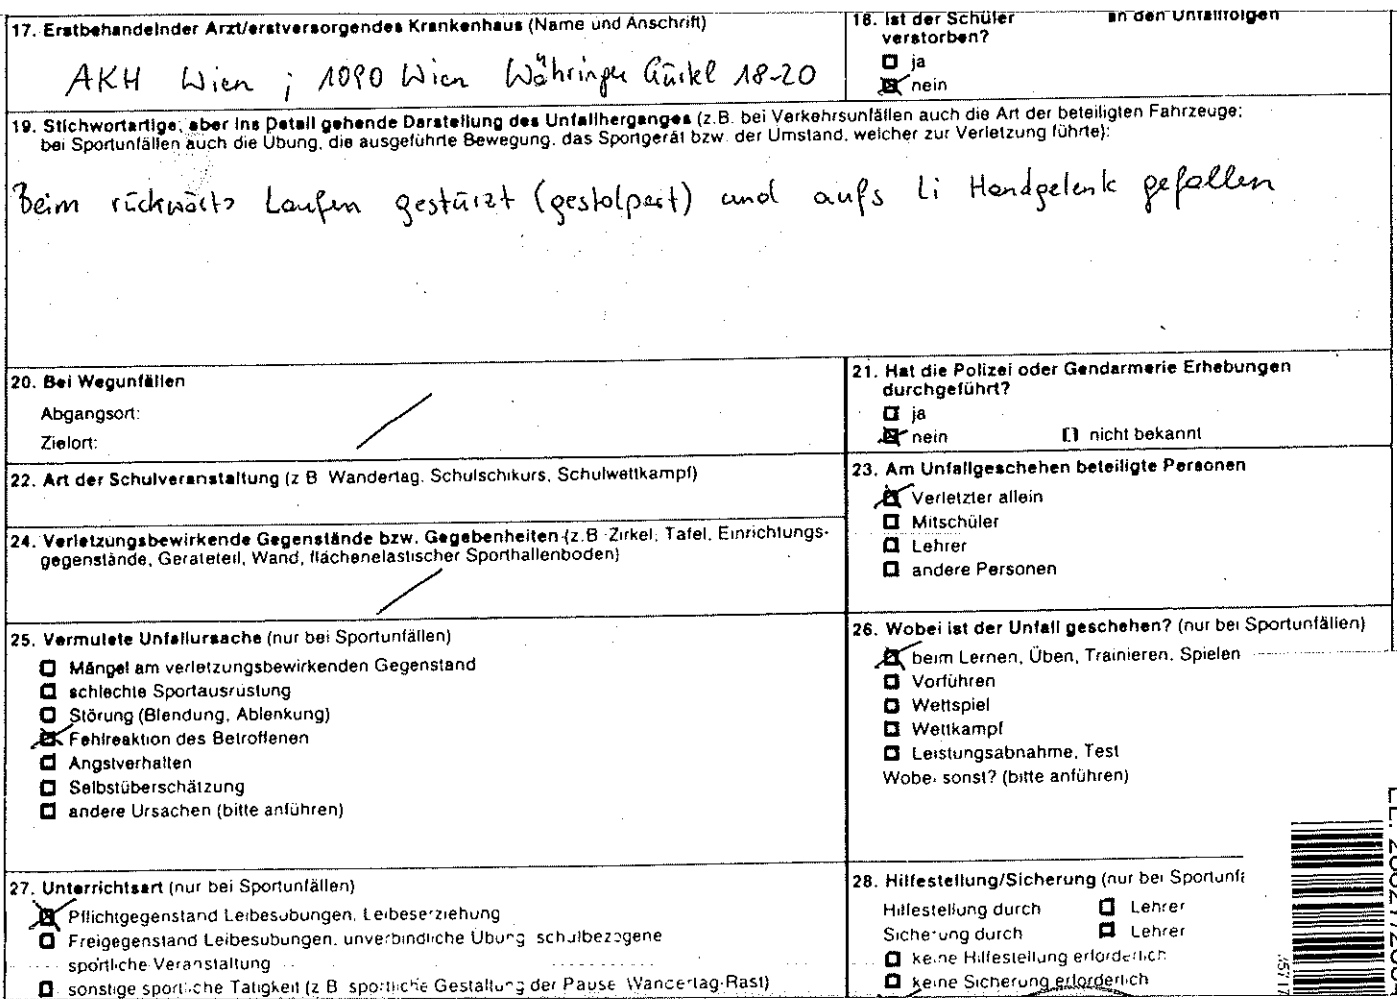 17. Erstbehandelnder Arzt/erstversorgendes Krankenhaus (Name und Anschrift)
AKH Wien ; 1090 Wien Währinger Gürtel 18-20
18. Ist der Schüler an den Unfallfolgen
verstorben?
ja
nein
19. Stichwortartige, aber ins Detail gehende Darstellung des Unfallherganges (z.B. bei Verkehrsunfällen auch die Art der beteiligten Fahrzeuge;
bei Sportunfällen auch die Übung, die ausgeführte Bewegung, das Sportgerät bzw. der Umstand, welcher zur Verletzung führte):
Beim rückwärts Laufen gestürzt (gestolpert) und aufs Li Handgelenk gefallen
20. Bei Wegunfällen
Abgangsort:
Zielort:
21. Hat die Polizei oder Gendarmerie Erhebungen
durchgeführt?
ja
nein [] nicht bekannt
22. Art der Schulveranstaltung (z B Wandertag, Schulschikurs, Schulwettkampf)
23. Am Unfallgeschehen beteiligte Personen
Verletzter allein
Mitschüler
Lehrer
andere Personen
24. Verletzungsbewirkende Gegenstände bzw. Gegebenheiten (z.B Zirkel, Tafel, Einrichtungs-
gegenstände, Geräteteil, Wand, flächenelastischer Sporthallenboden)
25. Vermutete Unfallursache (nur bei Sportunfällen)
Mängel am verletzungsbewirkenden Gegenstand
schlechte Sportausrüstung
Störung (Blendung, Ablenkung)
Fehlreaktion des Betroffenen
Angstverhalten
Selbstüberschätzung
andere Ursachen (bitte anführen)
26. Wobei ist der Unfall geschehen? (nur bei Sportunfällen)
beim Lernen, Üben, Trainieren, Spielen
Vorführen
Wettspiel
Wettkampf
Leistungsabnahme, Test
Wobei sonst? (bitte anführen)
27. Unterrichtsart (nur bei Sportunfällen)
Pflichtgegenstand Leibesübungen, Leibeserziehung
Freigegenstand Leibesübungen, unverbindliche Übung schulbezogene
sportliche Veranstaltung
sonstige sportliche Tätigkeit (z B sportliche Gestaltung der Pause Wandertag-Rast)
28. Hilfestellung/Sicherung (nur bei Sportunfä
Hilfestellung durch Lehrer
Sicherung durch Lehrer
keine Hilfestellung erforderlich
keine Sicherung erforderlich